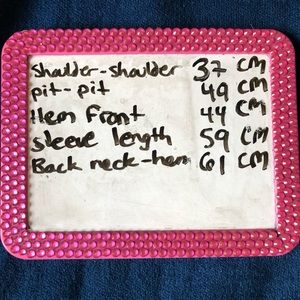 Shoulder-shoulder 37 CM
pit-pit 49 CM
Hem Front 44 CM
sleeve length 59 CM
Back neck-hem 61 CM